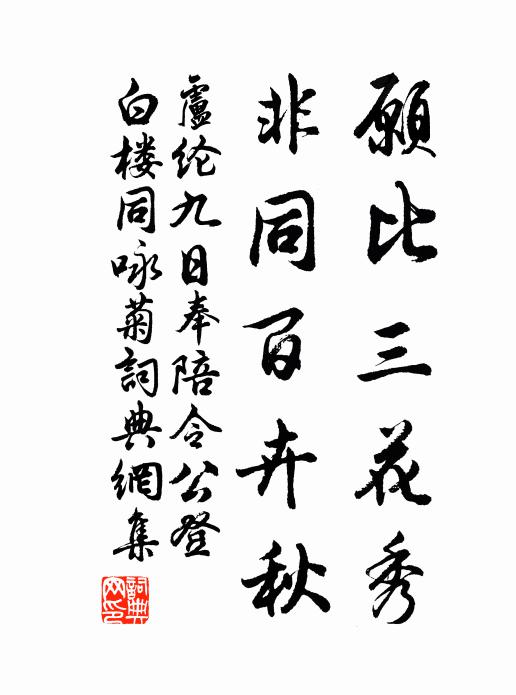 願比三花秀
非同百卉秋
盧纶九日奉陪令公登
白楼同咏菊詞典網集
詞典
网印